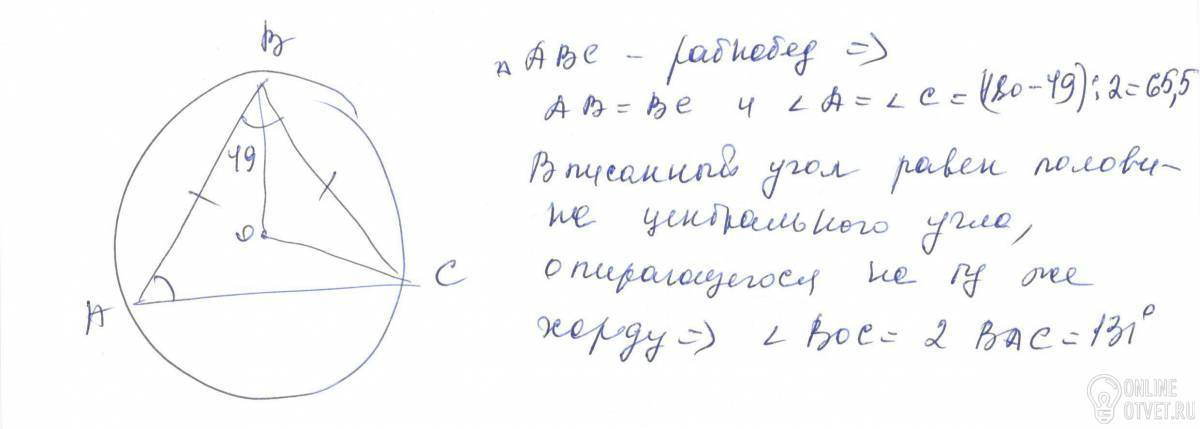 B
49
O
A
C
△ ABC – равнобед =>
AB = BC и ∠A = ∠C = (180-49):2=65,5
Вписанный угол равен полови-
не центрального угла,
опирающегося на ту же
хорду => ∠BOC = 2 BAC = 131°
ONLINE
OTVET.RU